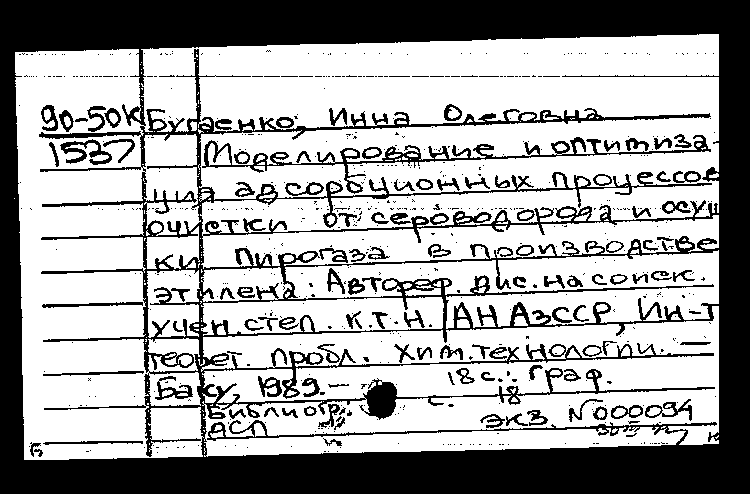 90-50к Бугаенко, Инна Олеговна
1537 Моделирование и оптимиза-
ция адсорбционных процессов
очистки от сероводорода и осуш
ки пирогаза в производстве
этилена: Автореф. дис. на соиск.
учен. степ. к.т.н. / АН АзССР, Ин-т
теорет. пробл. хим. технологии. —
Баку, 1989. — 18 с.: граф.
Библиогр.: с. 18
ДСП экз. N000094
Б